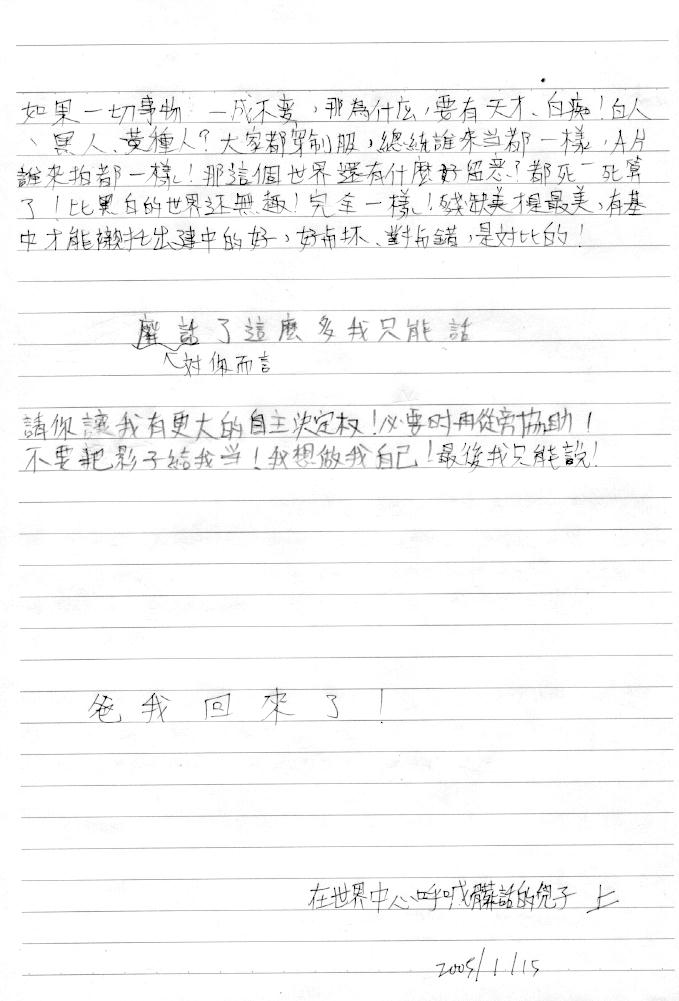 如果一切事物 一成不變，那為什么，要有天才、白痴！白人
、黑人、黃種人？大家都穿制服，總統誰來当都一樣，A片
誰來拍都一樣！那這個世界還有什麼好留恋？都死一死算
了！比黑白的世界还無趣！完全一樣！殘缺美才是最美，有基
中才能襯托出建中的好，好与坏、對与錯，是对比的！
廢話了這麼多我只能話
对你而言
請你讓我有更大的自主決定权！必要时再從旁協助！
不要把影子給我当！我想做我自己！最後我只能說！
爸我回來了！
在世界中心呼喊髒話的兒子 上
2005/1/15